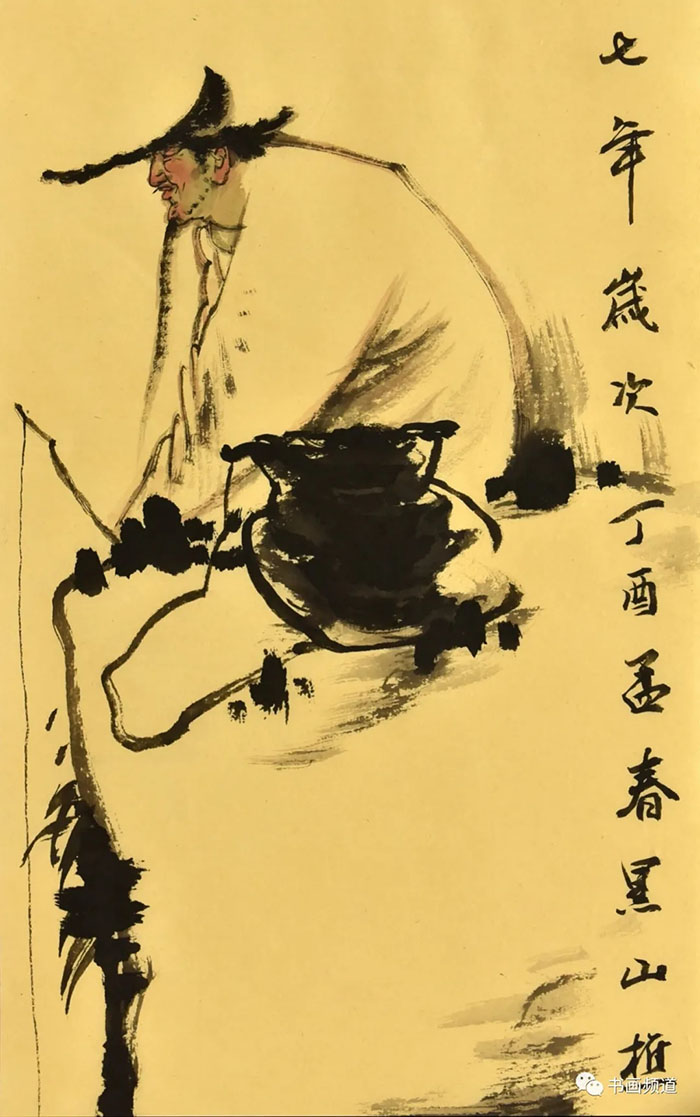 七年歲次丁酉孟春黑山
书画频道